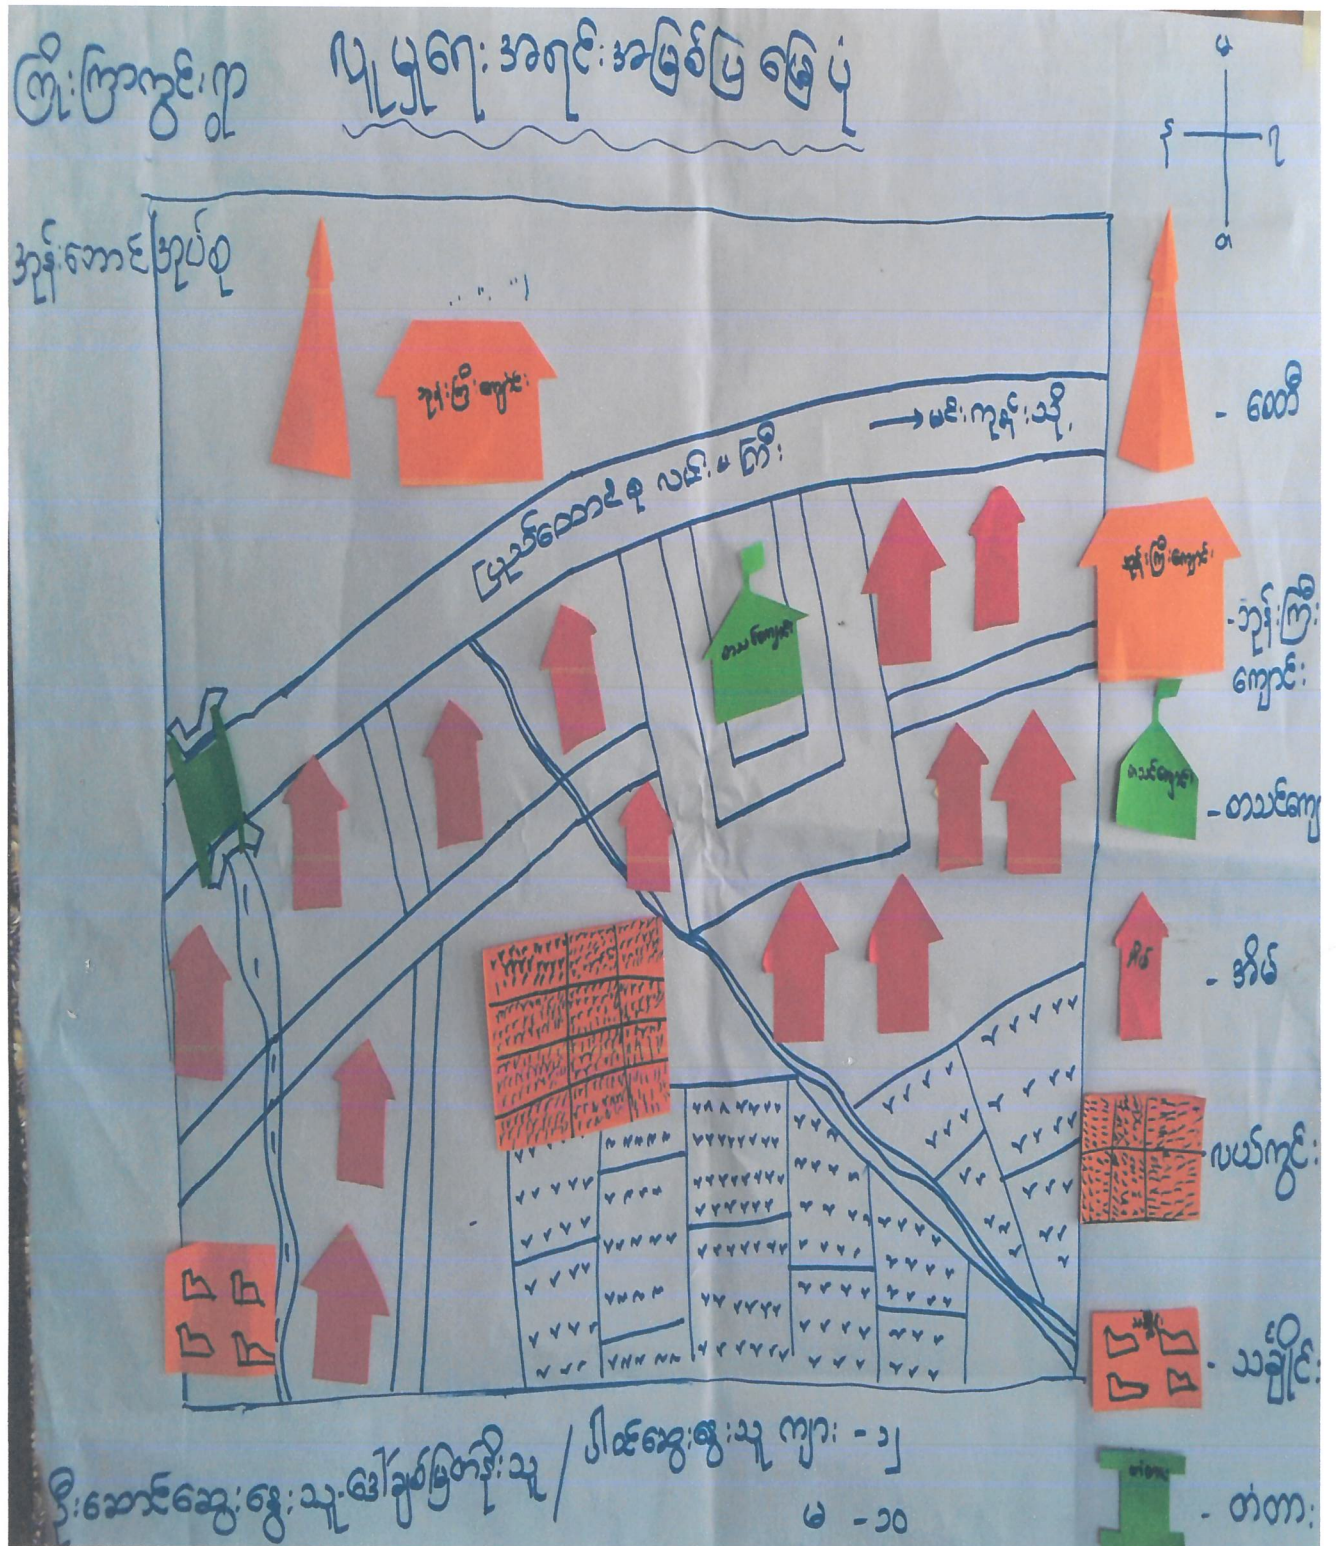 ကြိုးကြာကွင်းရွာ
လူမှုရေးအရင်းအမြစ်ပြမြေပုံ
မ
န
ရ
တ
အုန်းတောင်အုပ်စု
ဘုန်းကြီးကျောင်း
→မင်းကုန်းသို့
ပြည်ထောင်စုလမ်းမကြီး
စာသင်ကျောင်း
- စေတီ
ဘုန်းကြီးကျောင်း
-ဘုန်းကြီး
ကျောင်း
စာသင်ကျောင်း
- စာသင်ကျေ
အိမ်
- အိမ်
- လယ်ကွင်း
- သင်္ချိုင်း
တံတား
- တံတား
ဦးဆောင်ဆွေးနွေးသူ-ဒေါ်ချစ်မြတ်နိုးသူ / ပါဝင်ဆွေးနွေးသူ ကျား - ၁၂
မ - ၁၀